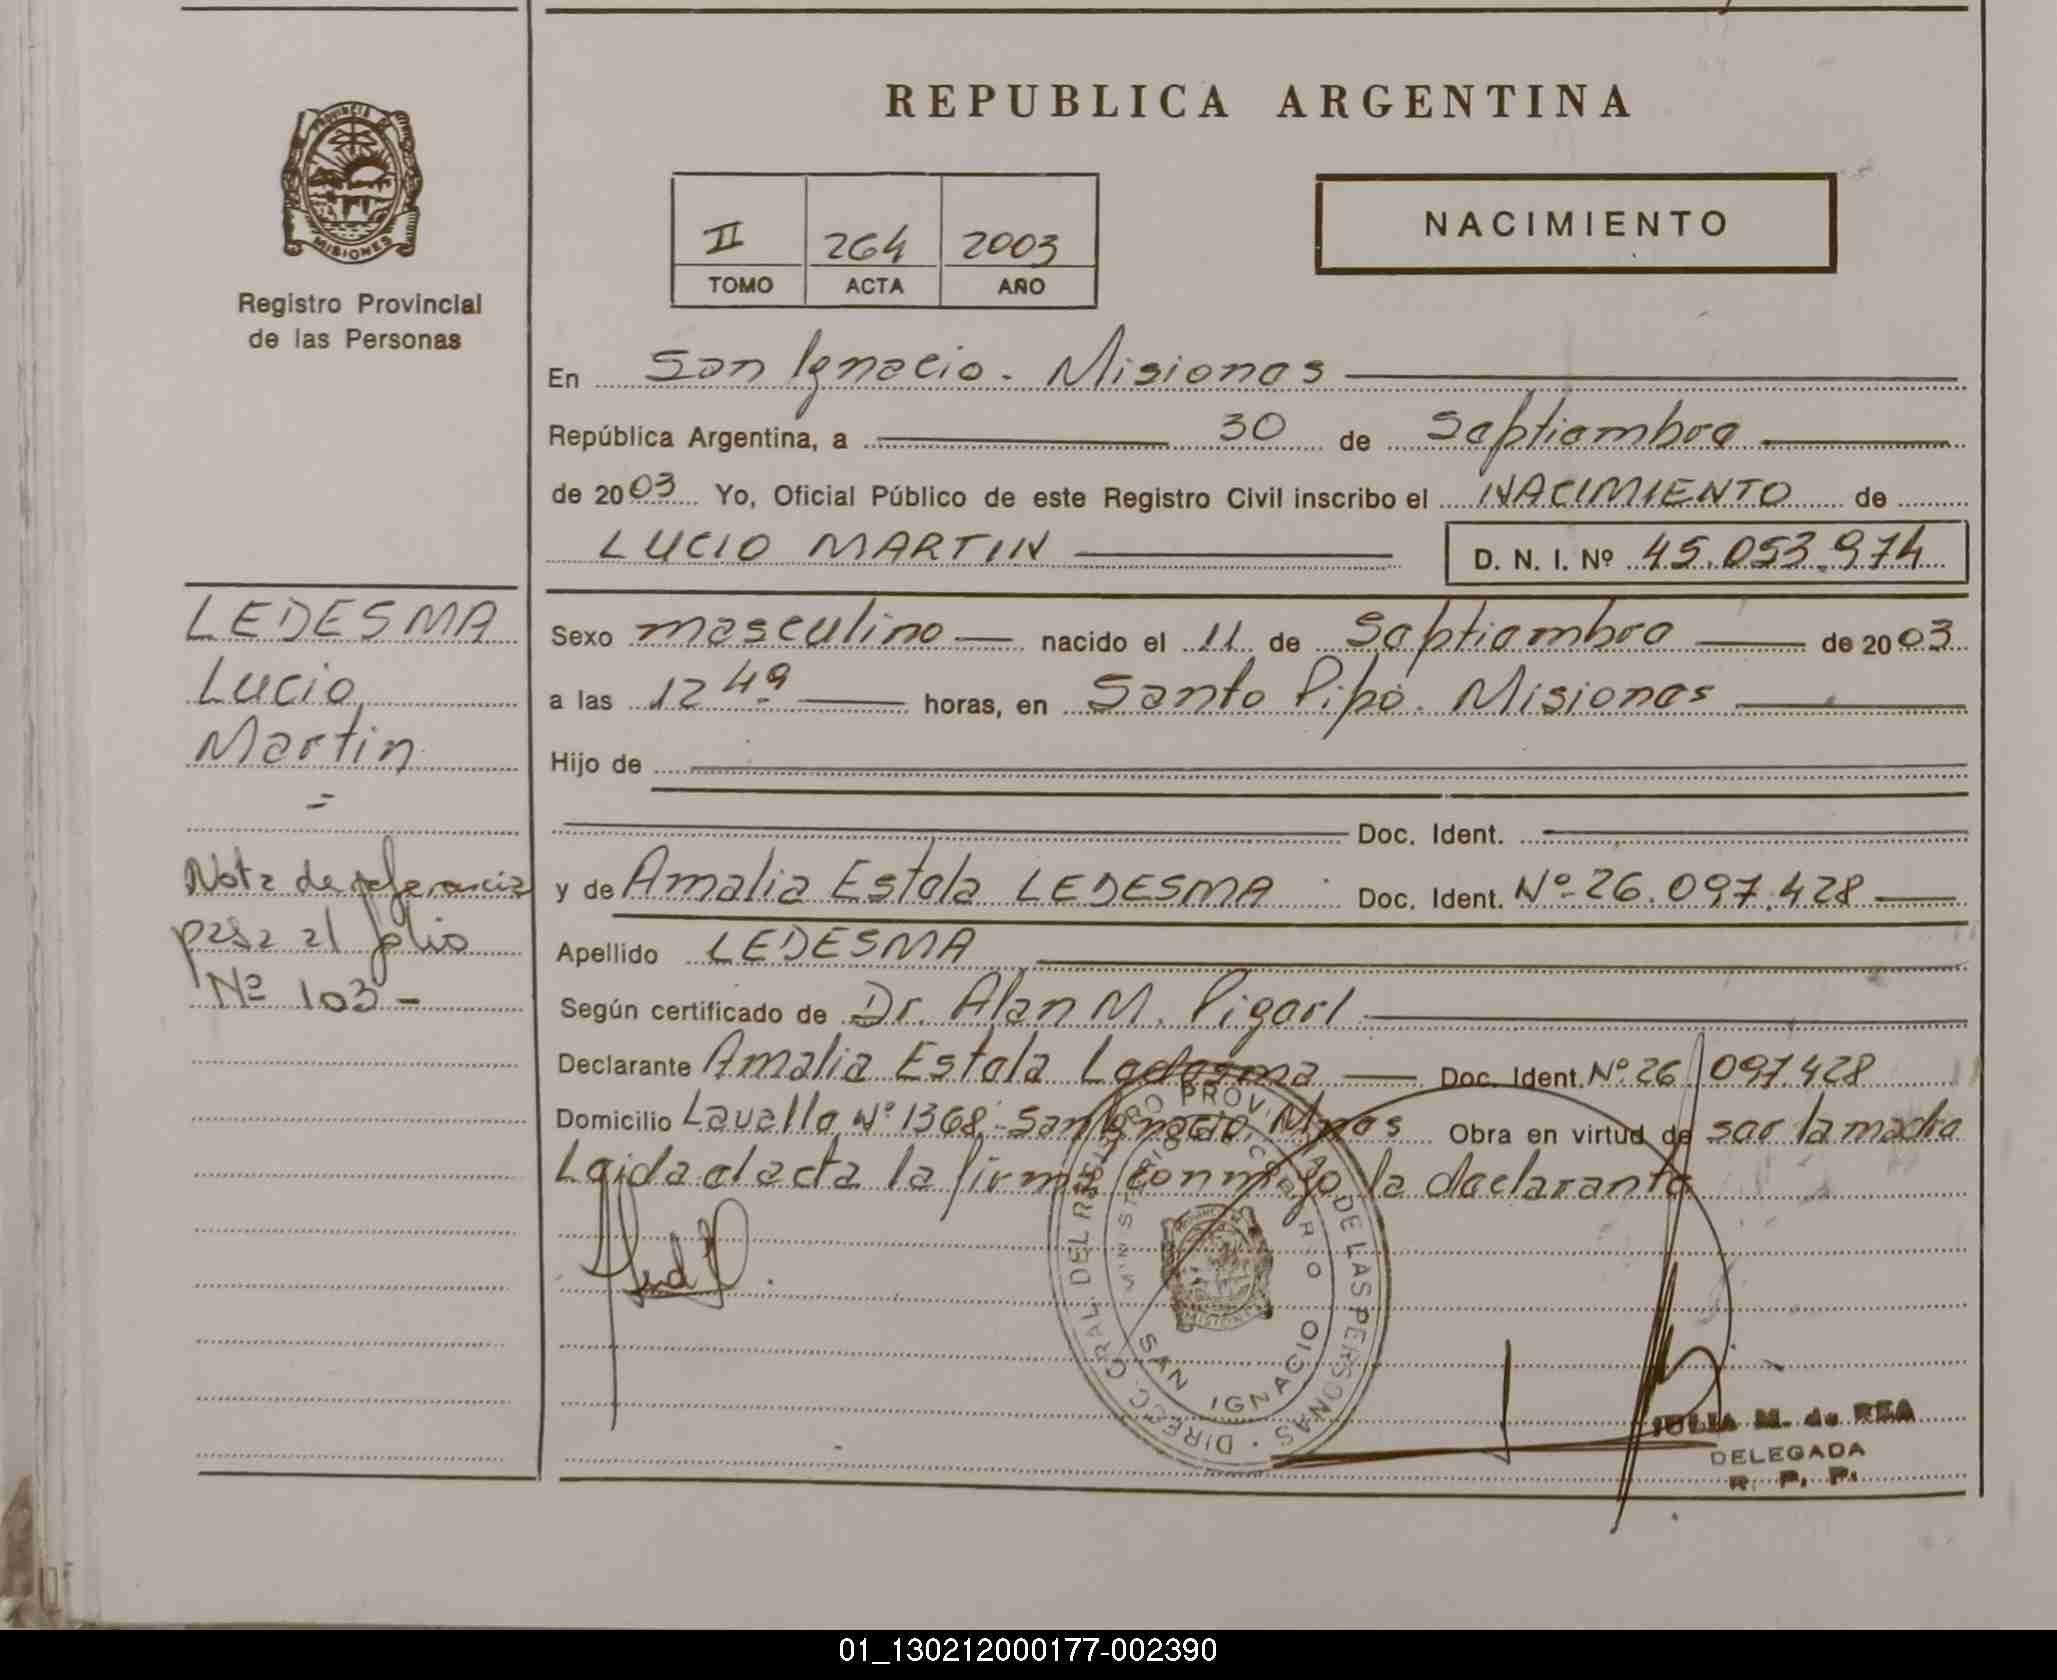 REPUBLICA ARGENTINA
PROVINCIA DE
MISIONES
Registro Provincial
de las Personas
II 264 2003
TOMO ACTA AÑO
NACIMIENTO
En San Ignacio - Misiones
República Argentina, a 30 de Septiembre
de 2003 Yo, Oficial Público de este Registro Civil inscribo el NACIMIENTO de
LUCIO MARTIN D. N. I. Nº 45.053.974
LEDESMA
Lucio
Martin
=
Nota de referencia
pasa al folio
Nº 103 -
Sexo masculino nacido el 11 de Septiembre de 2003
a las 12 49 horas, en Santo Pipó. Misiones
Hijo de
Doc. Ident.
y de Amalia Estela LEDESMA Doc. Ident. Nº 26.097.428
Apellido LEDESMA
Según certificado de Dr. Alan M. Pigerl
Declarante Amalia Estela Ledesma Doc. Ident. Nº 26.097.428
Domicilio Lavalle Nº 1368 - San Ignacio Mnes Obra en virtud de ser la madre
Leida el acta la firma conmigo la declarante
DIRECC. GRAL. DEL REGISTRO PROVINCIAL DE LAS PERSONAS
MINISTERIO
SAN IGNACIO
MISIONES
JULIA M. de REA
DELEGADA
R. P. P.
01_130212000177-002390